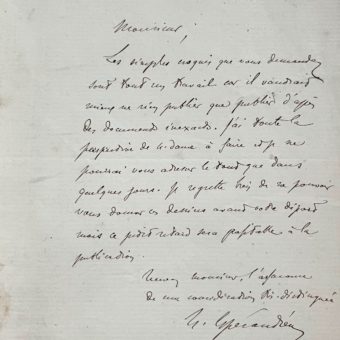 Monsieur,
Les simples croquis que vous demandez
sont tout un travail car il vaudrait
mieux ne rien publier que publier d'après
des documents inexacts. J'ai toute la
perspective de N. Dame à faire et je ne
pourrai vous adresser le tout que dans
quelques jours. Je regrette de ne pouvoir
vous donner ces dessins avant votre départ
mais ce petit retard sera profitable à la
publication.
Recevez monsieur, l'assurance
de ma considération très distinguée